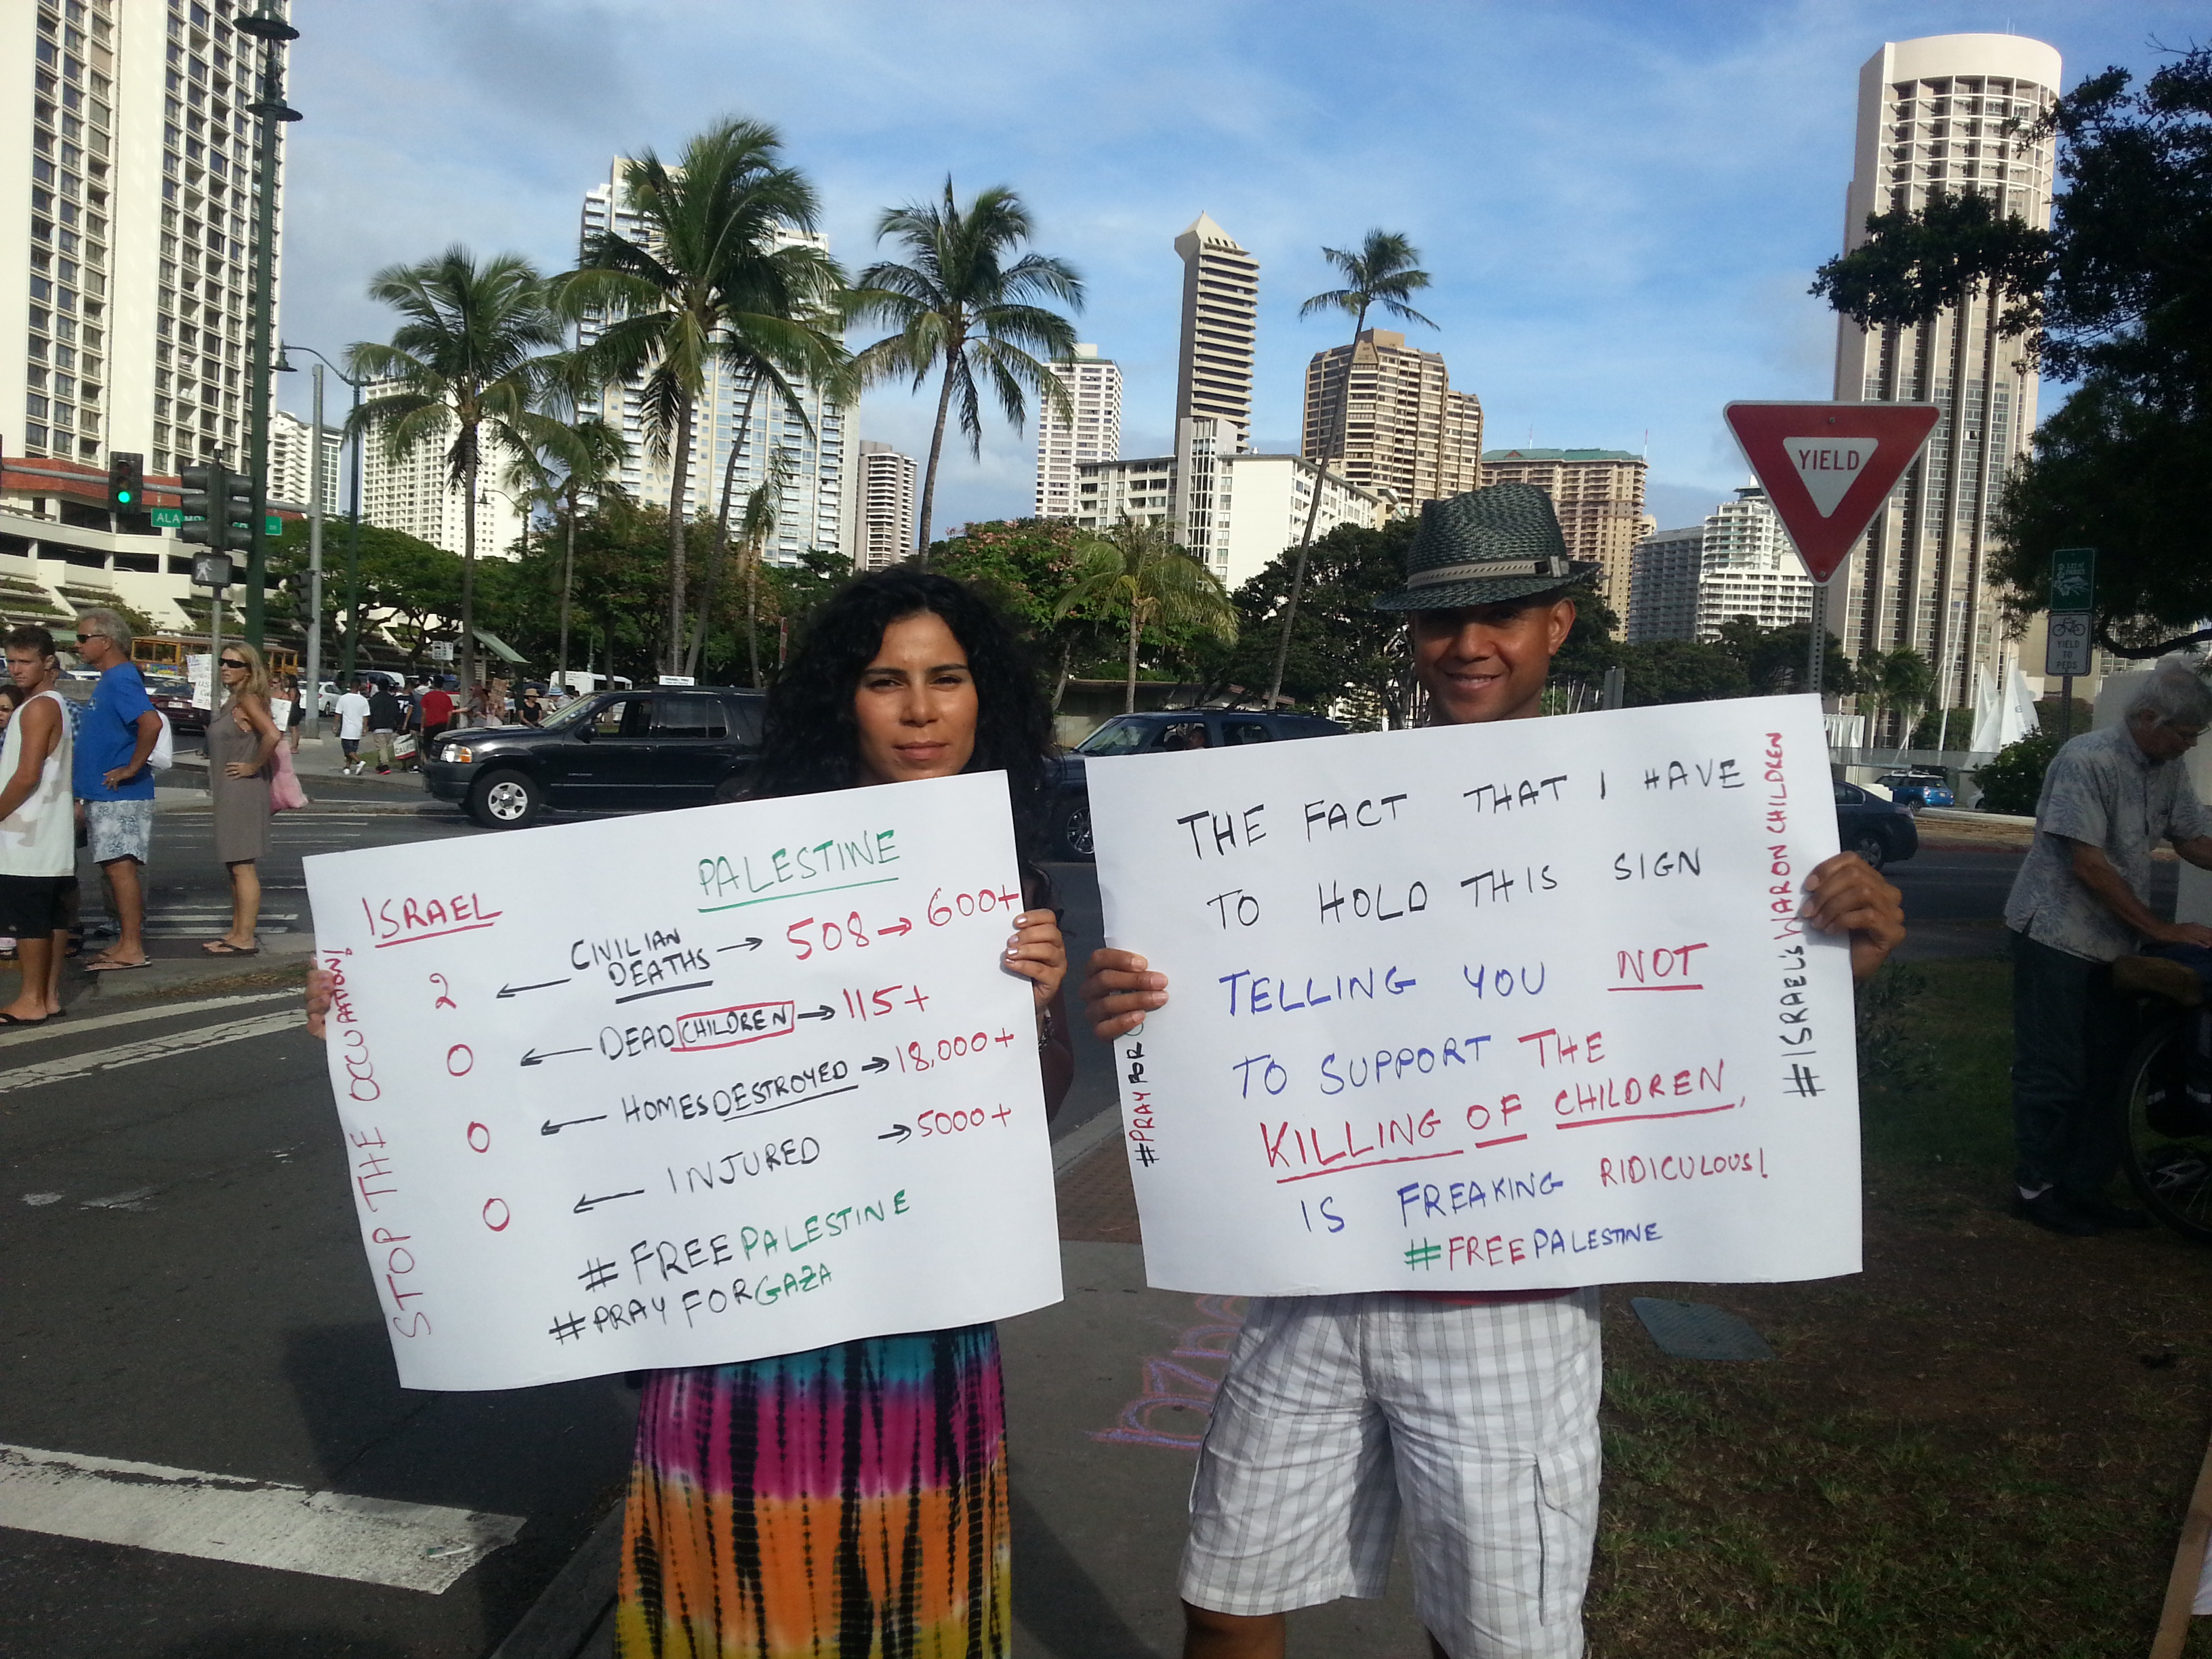 YIELD
ALA
YIELD
TO
PEDS
ISRAEL
PALESTINE
2 ← CIVILIAN DEATHS → 508 → 600+
0 ← DEAD CHILDREN → 115+
0 ← HOMES DESTROYED → 18,000+
0 ← INJURED → 5000+
#FREEPALESTINE
#PRAYFORGAZA
STOP THE OCCUPATION!
THE FACT THAT I HAVE
TO HOLD THIS SIGN
TELLING YOU NOT
TO SUPPORT THE
KILLING OF CHILDREN,
IS FREAKING RIDICULOUS!
#FREEPALESTINE
#PRAY FOR
#ISRAEL'S WAR ON CHILDREN